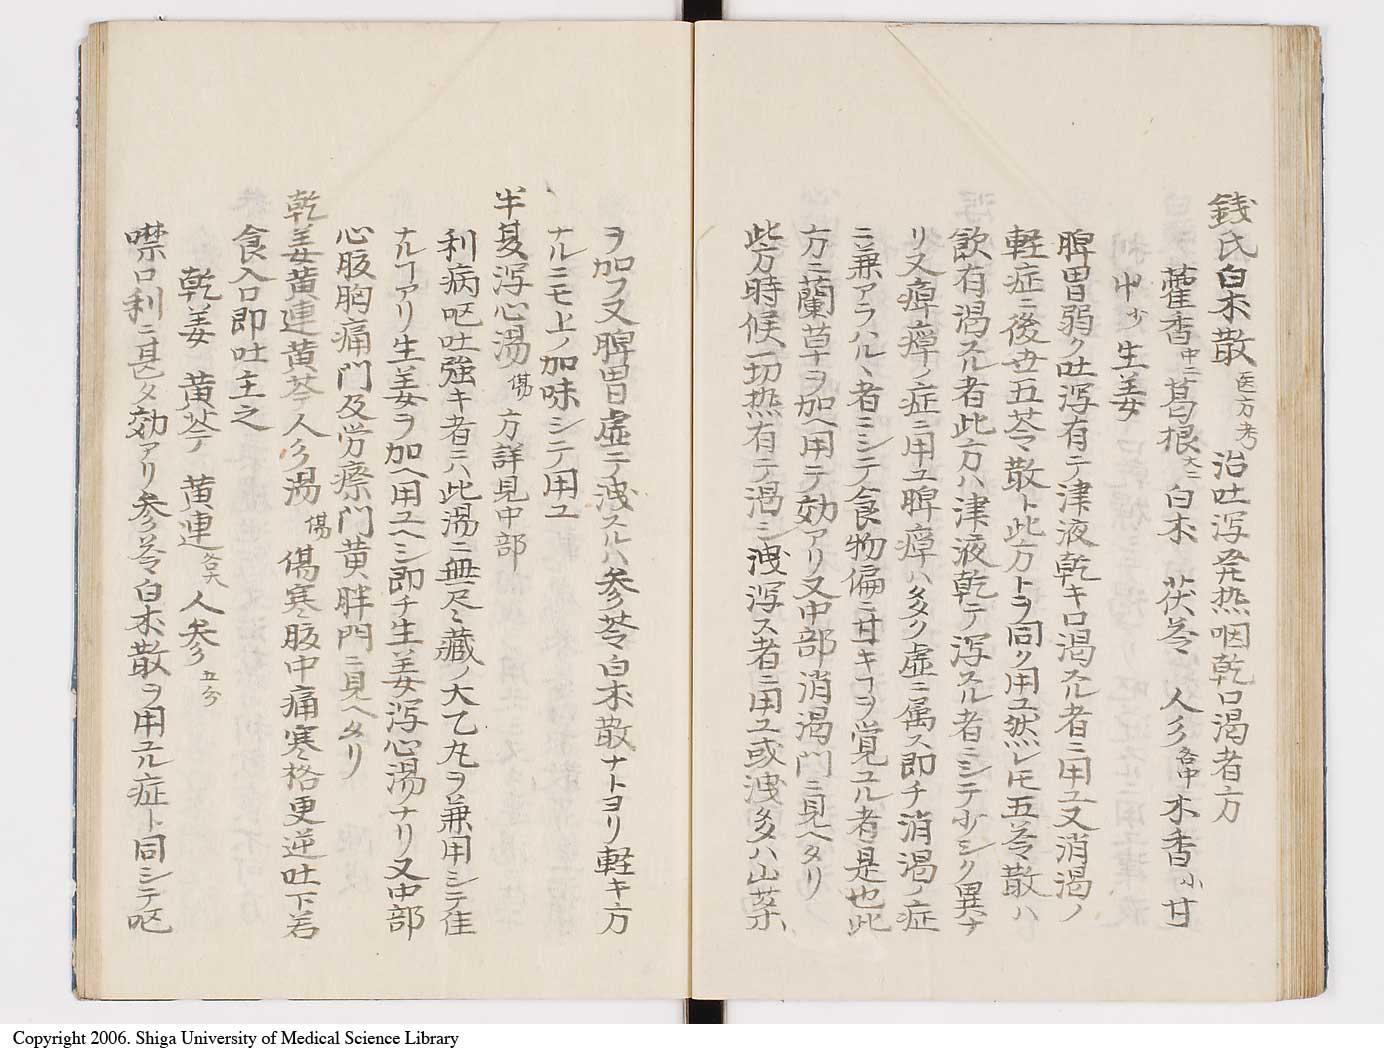 銭氏白朮散 医方考 治吐瀉発热咽乾口渇者方
藿香中二葛根大二白朮 茯苓 人参各中木香小甘
中少生姜
脾胃弱ク吐瀉有テ津液乾キ口渇スル者ニ用ユ又消渇ノ
軽症ニ後世五苓散ト此方トヲ同ク用ユ然レモ五苓散ハ
飲有渇スル者此方ハ津液乾テ瀉スル者ニシテ少シク異ナ
リ又痺癉ノ症ニ用ユ脾癉ハ多ク虚ニ属ス即チ消渇ノ症
ニ兼アラハルヽ者ニシテ食物偏ニ甘キヿヲ覚ユル者是也此
方ニ蘭草ヲ加ヘ用テ効アリ又中部消渇門ニ見ヘタリ
此方時候一切热有テ渇シ洩瀉ス者ニ用ユ或洩多ハ山薬
ヲ加フ又脾胃虚シテ洩スルハ参苓白朮散ナトヨリ軽キ方
ナルニモ上ノ加味シテ用ユ
半夏瀉心湯 傷 方詳見中部
利病呕吐強キ者ニハ此湯ニ無尽蔵ノ大乙丸ヲ兼用シテ佳
ナルヿアリ生姜ヲ加ヘ用ユヘシ即チ生姜瀉心湯ナリ又中部
心腹胸痛門及労療門黄胖門ニ見ヘタリ
乾姜黄連黄芩人参湯 傷 傷寒腹中痛寒格更逆吐下若
食入口即吐主之
乾姜 黄芩 黄連各大人参五分
噤口利ニ甚タ効アリ参苓白朮散ヲ用ユル症ト同シテ呕